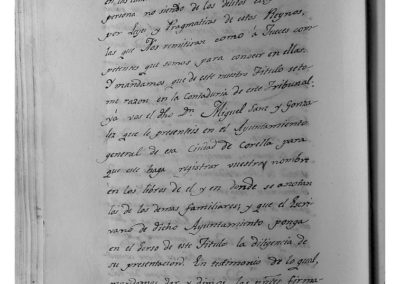 pertena no siendo de los delitos
por Leyes y Pragmaticas de estos Reynos,
las que Nos remitiran como à Jueces com
petentes que somos para conocer en ellas.
Y mandamos que de este nuestro Titulo se to-
me razon en la Contaduria de este Tribunal,
yà vos el dho Dn. Miguel Sanz y Gonza
la que le presenteis en el Ayuntamiento
general de esa Ciudad de Corella para
que este haga registrar vuestro nombre
en los libros de el y en donde se anotan
los de los demas familiares, y que el Escri
vano de dicho Ayuntamiento ponga
en el Dorso de este Titulo la diligencia de
su presentacion. En testimonio de lo qual,
mandamos dar y dimos las preses firma-